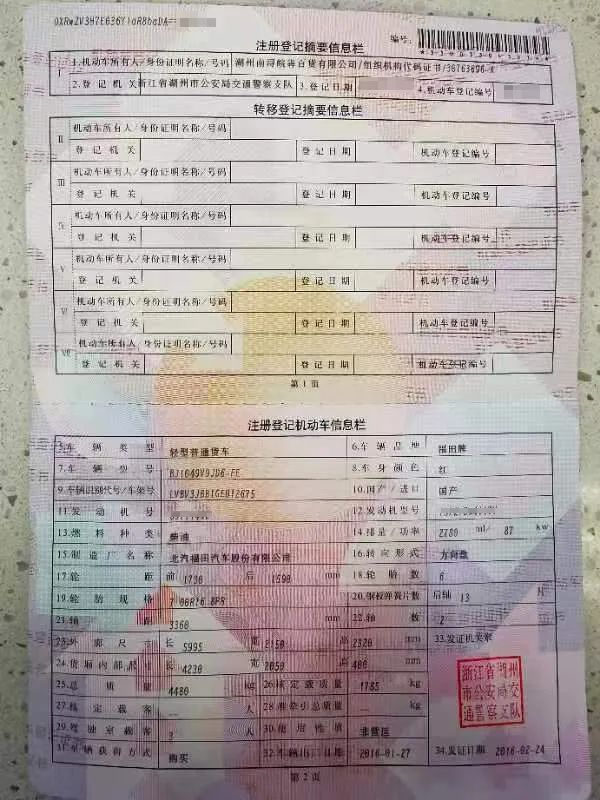 注册登记摘要信息栏
编号:
I 1.机动车所有人/身份证明名称/号码 湖州南浔皖涛百货有限公司/组织机构代码证书/
2.登记机关 浙江省湖州市公安局交通警察支队 3.登记日期 4.机动车登记编号
转移登记摘要信息栏
II 机动车所有人/身份证明名称/号码
登记机关 登记日期 机动车登记编号
III 机动车所有人/身份证明名称/号码
登记机关 登记日期 机动车登记编号
IV 机动车所有人/身份证明名称/号码
登记机关 登记日期 机动车登记编号
V 机动车所有人/身份证明名称/号码
登记机关 登记日期 机动车登记编号
VI 机动车所有人/身份证明名称/号码
登记机关 登记日期 机动车登记编号
VII 机动车所有人/身份证明名称/号码
登记机关 登记日期 机动车登记编号
第1页
注册登记机动车信息栏
5.车辆类型 轻型普通货车 6.车辆品牌 福田牌
7.车辆型号 BJ1049V9JD6-FE 8.车身颜色 红
9.车辆识别代号/车架号 10.国产/进口 国产
11.发动机号 12.发动机型号
13.燃料种类 柴油 14.排量/功率 2780 ml/ 87 kw
15.制造厂名称 北汽福田汽车股份有限公司 16.转向形式 方向盘
17.轮距 前 1730 后 1590 mm 18.轮胎数 6
19.轮胎规格 7.00R16 8PR 20.钢板弹簧片数 后轴 13 片
21.轴距 3360 mm 22.轴数 2
23.外廓尺寸 长 5995 宽 2150 高 2320 mm 33.发证机关章
24.货厢内部尺寸 长 4230 宽 2050 高 400 mm
25.总质量 4480 kg 26.核定载质量 1785 kg
27.核定载客 — 28.准牵引总质量 — kg
29.驾驶室载客 3 人 30.使用性质 非营运
31.车辆获得方式 购买 32.车辆出厂日期 2016-01-27 34.发证日期 2016-02-24
浙江省湖州
市公安局交
通警察支队
第2页